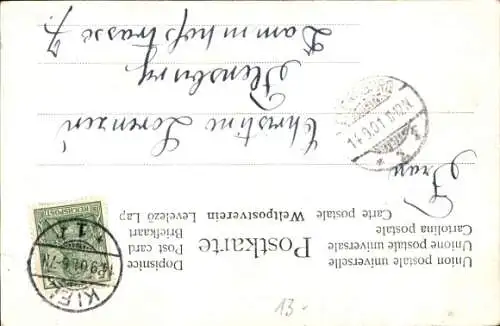 Union postale universelle
Unione postale universale
Cartolina postale
Carte postale
Weltpostverein
Levelező Lap
Postkarte
Dopisnice
Post card
Briefkaart
REICHSPOST
KIEL
1
Frau
Christine Lorenzen
Flensburg
14.9.01
13-